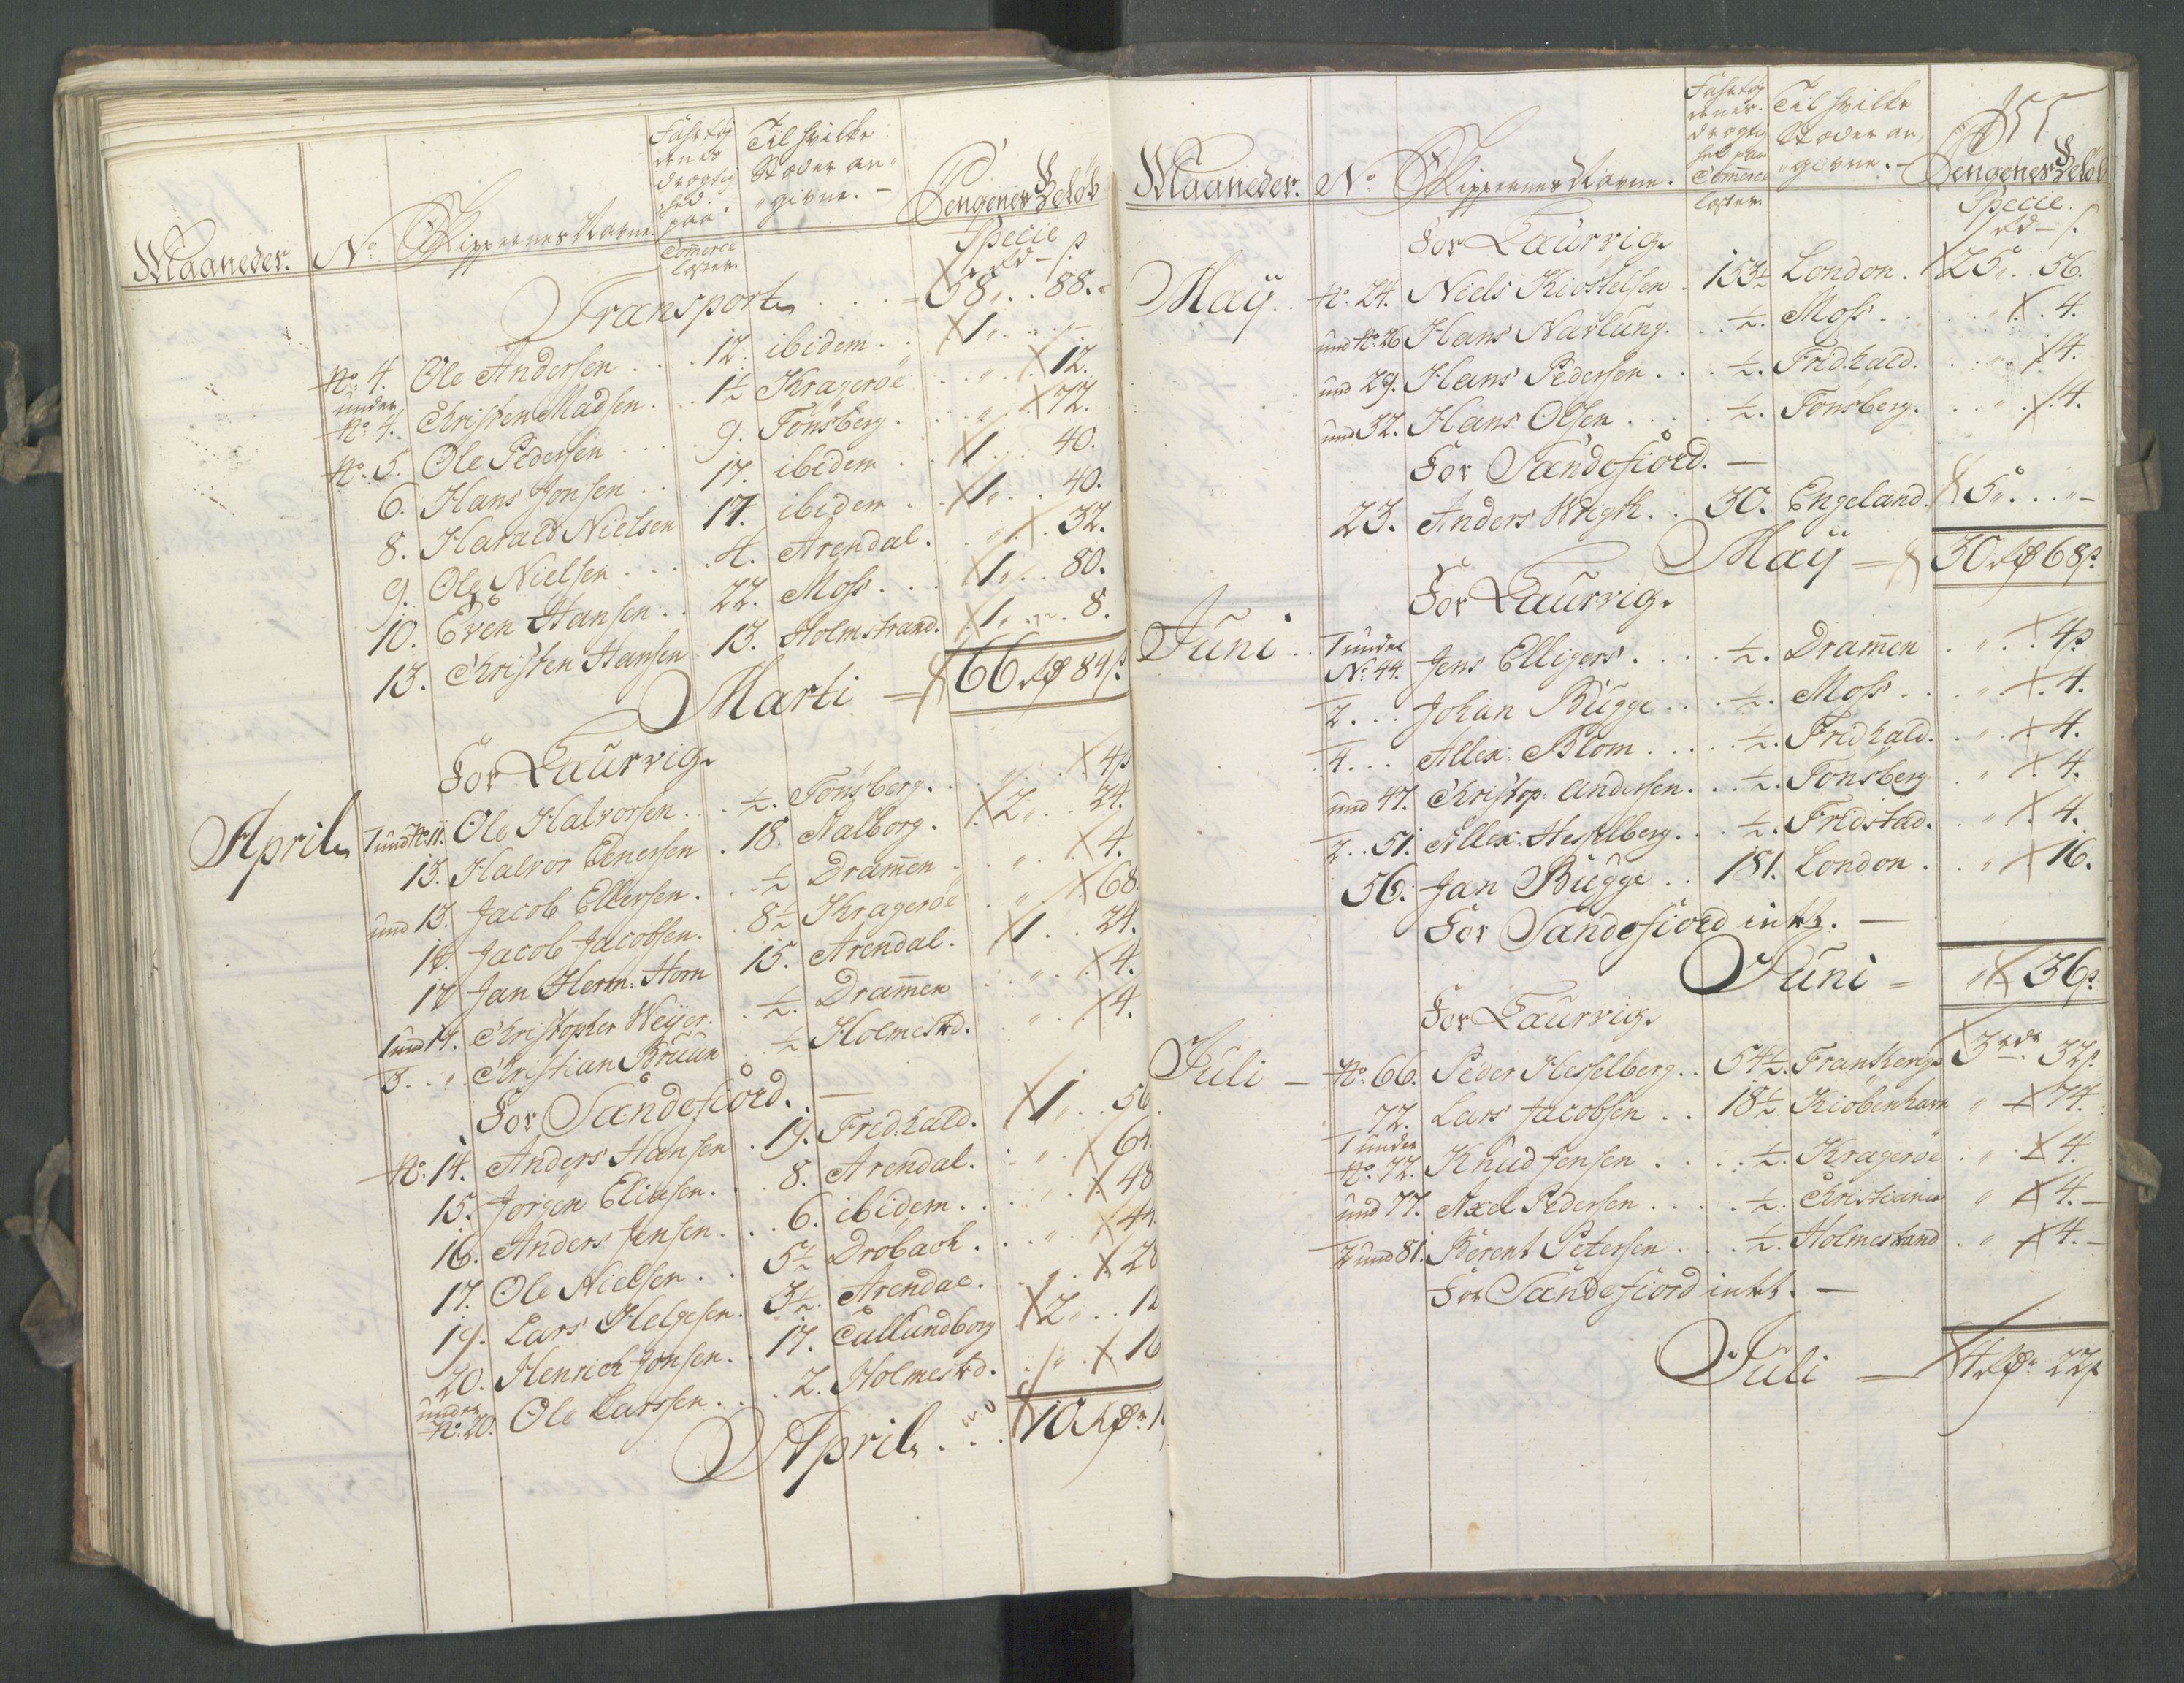 Maaneder. No. Skippernes Navne. Fahrtøj ernes drægtig hed paa Comerce læster. Til hvilke Stæder an givne. Pengenes Beløb Specie rd - s
Transport 58 .. 88.
No. 4. Ole Andersen 12. ibidem 1 .. -
under No. 4. Christen Madsen 1½ Kragerøe " 12.
No. 5. Ole Pedersen 9. Tønsberg " 72.
6. Hans Jonsen 17. ibidem 1 .. 40.
8. Harald Nielsen 17. ibidem 1 .. 40.
9. Ole Nielsen 4. Arendal. " 32.
10. Even Hansen 22. Moss 1 .. 80.
13. Christen Hansen 13. Holmstrand. 1 .. 8.
Marti = 66 rd 84 s.
For Laurvig.
April 1 und No. 11. Ole Halvorsen ½. Tønsberg. " 4 s
13. Halvor Evensen 18. Aalborg. 2 .. 24.
und 13. Jacob Ellersen. ½ Dramen " 4.
14. Jacob Jacobsen. 8½ Kragerøe " 68
17. Jan Herm. Horn 15. Arendal. 1 .. 24.
1 und 17. Christopher Weyer. ½. Dramen " 4.
3. " Christian Bruun ½ Holmestrd. " 4.
For Sandefiord. -
No. 14. Anders Hansen 19. Fridhald. 1 .. 56.
15. Jørgen Eliasen. 8. Arendal. " 64
16. Anders Jensen. 6. ibidem. 48
17. Ole Nielsen 5½ Drøbach. " 44
19. Lars Helgesen. 3½. Arendal. 28
20. Henrich Jonsen. 17. Callundborg 2 .. 12
under No. 20. Ole Larssen. 2. Holmestrd. " 16
April 10 rd
155
Maaneder. No. Skippernes Navne. Fahrtøj ernes drægtig hed paa Comerce læster. Til hvilke Stæder an givne. - Pengenes Beløb Specie. rd - s.
For Laurvig.
May No. 24. Niels Kiostelsen 153½ London. 25 .. 56.
und No. 26 Hans Narlung. ½. Moss 4.
und 29. Hans Pedersen ½. Fridhald. " 4.
und 32. Hans Olsen ½. Tønsberg. " 4.
For Sandefiord. -
23. Anders Wrigth. 30. Engeland. 5 .. " -
May = 30 rd 68 s
For Laurvig.
Juni 1 under No. 44. Jens Elligers. ½. Dramen " 4 s
2. Johan Bugge ½. Moss " 4.
4. Allex. Blom ½. Fridhald. " 4.
und 47. Christop. Andersen. ½. Tønsberg " 4.
2. 51. Allex. Hesselberg. ½. Fridstad. " 4.
56. Jan Bugge 181. London. " 16.
For Sandefiord intet. -
Juni = " 36 s.
For Laurvig.
Juli - No. 66. Peder Hesselberg. 54½. Frankerige 3 rd. 32 s.
72. Lars Jacobsen 18½ Kiøbenhavn " 74.
1 under No. 72. Knud Jensen ½. Kragerøe " 4.
und 77. Axel Pedersen ½. Christiania " 4. -
2 und 81. Berent Petersen ½. Holmestrand " 4. -
For Sandefiord intet. -
Juli = 4 rd. 22 s